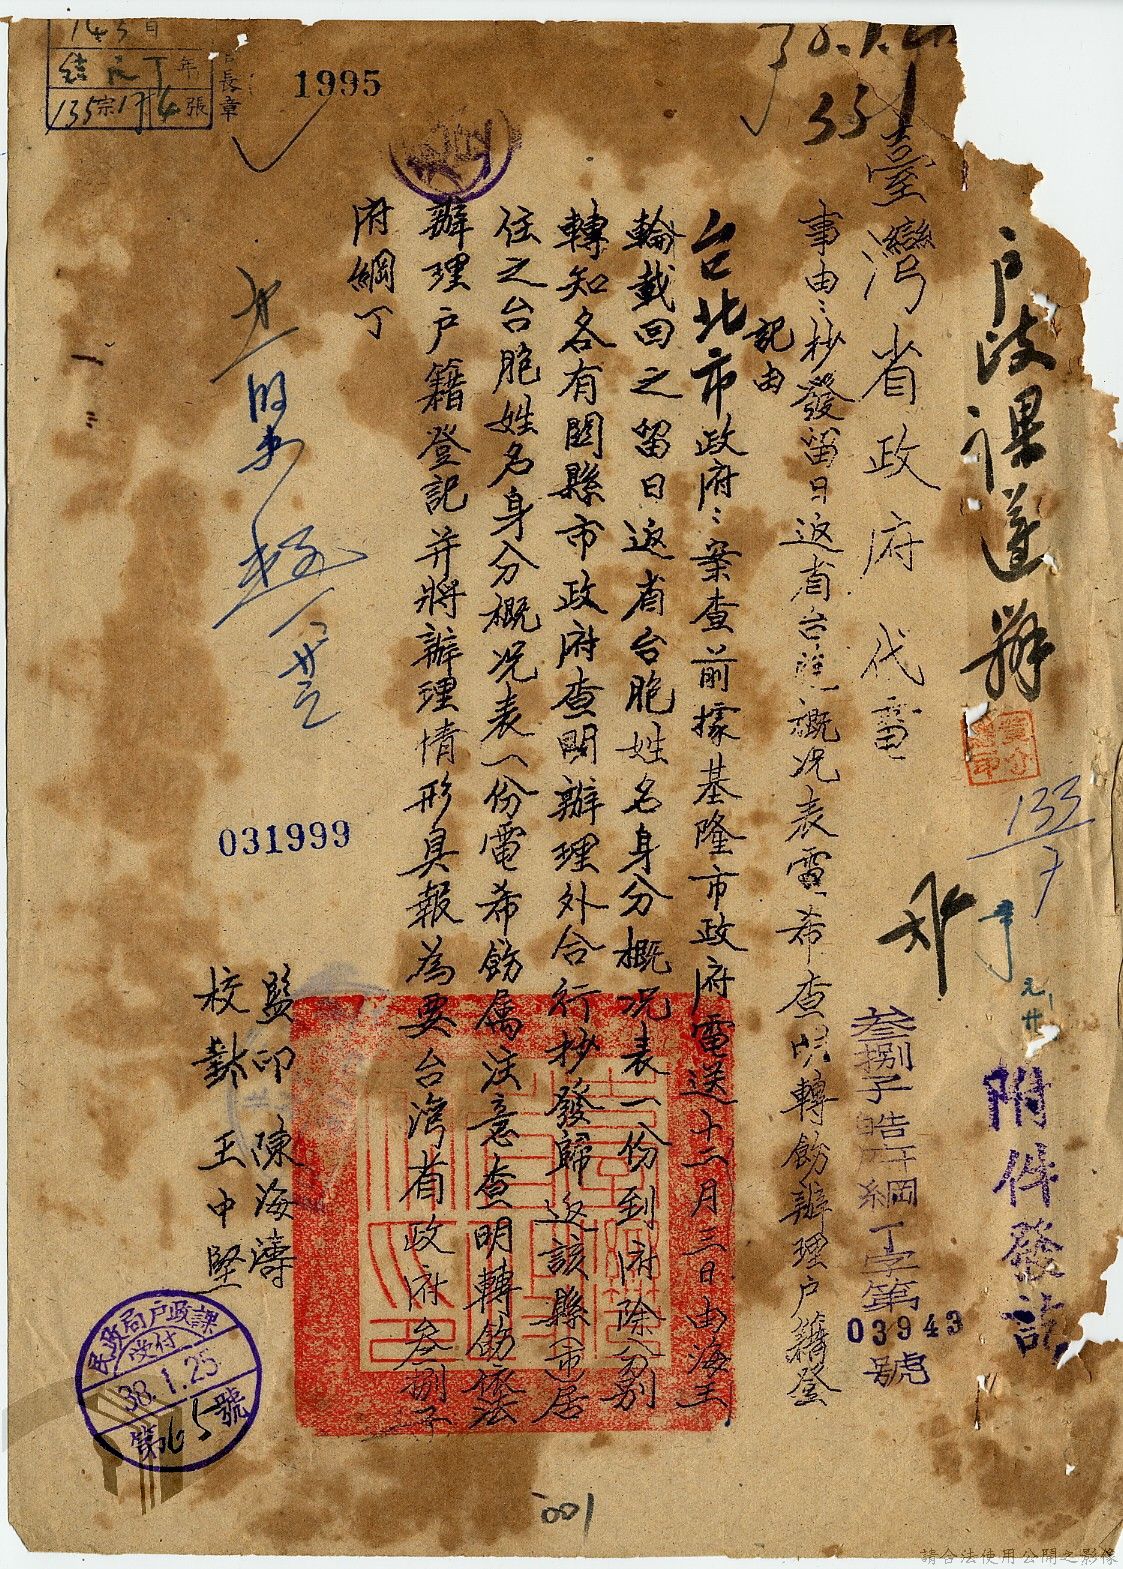 戶政課遵辦
133/7
附件發訖
臺灣省政府代電
叁捌子皓府綱丁字第
03943
號
事由:抄發留日返省台胞概况表電希查明轉飭辦理戶籍登
記由
台北市政府:案查前據基隆市政府電送十二月三日由海王
輪載回之留日返省台胞姓名身分概况表一份到府除分別
轉知各有関縣市政府查明辦理外合行抄發歸返該縣市居
住之台胞姓名身分概况表一份電希飭属注意查明轉飭依法
辦理戶籍登記并將辦理情形具報為要台灣省政府叁捌子
府綱丁
監印陳海濤
校對王中堅
1995
031999
結 年
135宗17 4張
長章
331
民政局戶政課
受付
38.1.25
第65號
001
請合法使用公開之影像